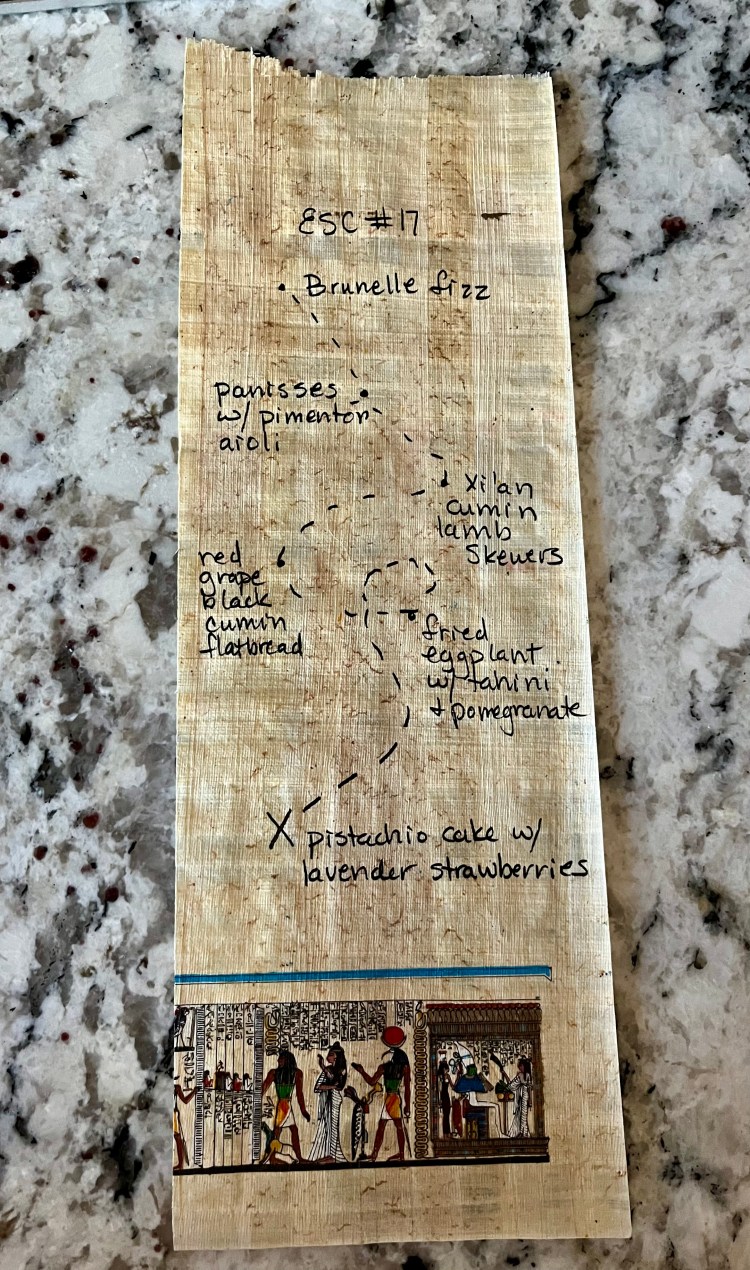 ESC #17
Brunelle fizz
panisses
w/ pimentón
aioli
Xi'an
cumin
lamb
skewers
red
grape
black
cumin
flatbread
fried
eggplant
w/ tahini
+ pomegranate
X pistachio cake w/
lavender strawberries